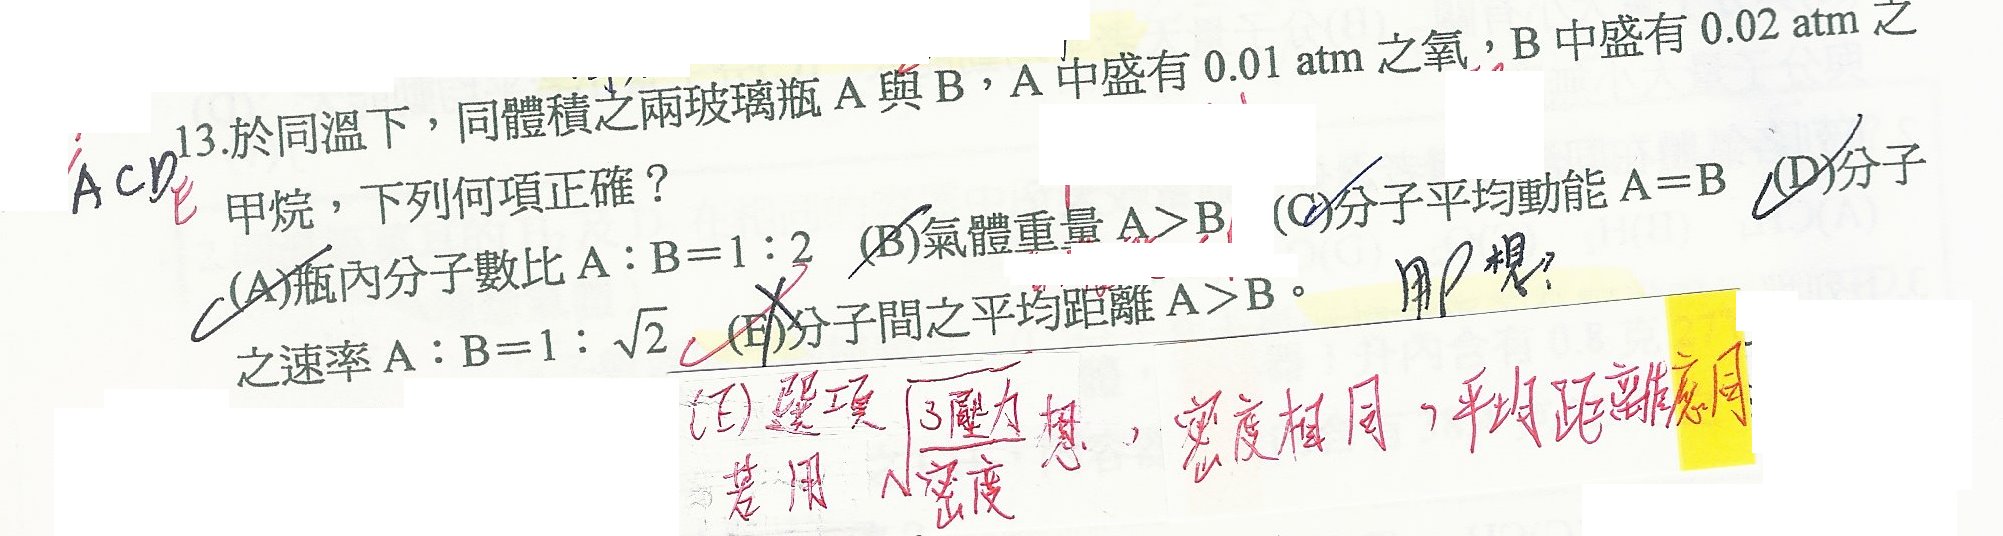 13.於同溫下，同體積之兩玻璃瓶 A 與 B，A 中盛有 0.01 atm 之氧，B 中盛有 0.02 atm 之
ACD
E
甲烷，下列何項正確？
(A)瓶內分子數比 A：B＝1：2 (B)氣體重量 A＞B (C)分子平均動能 A＝B (D)分子
之速率 A：B＝1：√2 (E)分子間之平均距離 A＞B。
用P想？
(E)選項 若用 √(3壓力/密度) 想，密度相同，平均距離應同